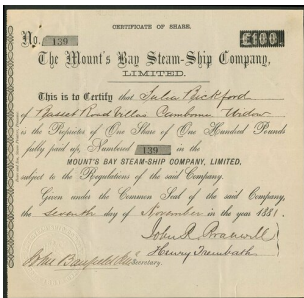 CERTIFICATE OF SHARE.
No. 139 £100
The Mount's Bay Steam-Ship Company,
LIMITED.
This is to Certify that Julia Bickford
of Basset Road Villas Camborne Widow
is the Proprietor of One Share of One Hundred Pounds
fully paid up, Numbered 139 in the
MOUNT'S BAY STEAM-SHIP COMPANY, LIMITED,
subject to the Regulations of the said Company.
Given under the Common Seal of the said Company,
the seventh day of November in the year 1881.
John R. Branwell
Henry Trembath
Secretary.